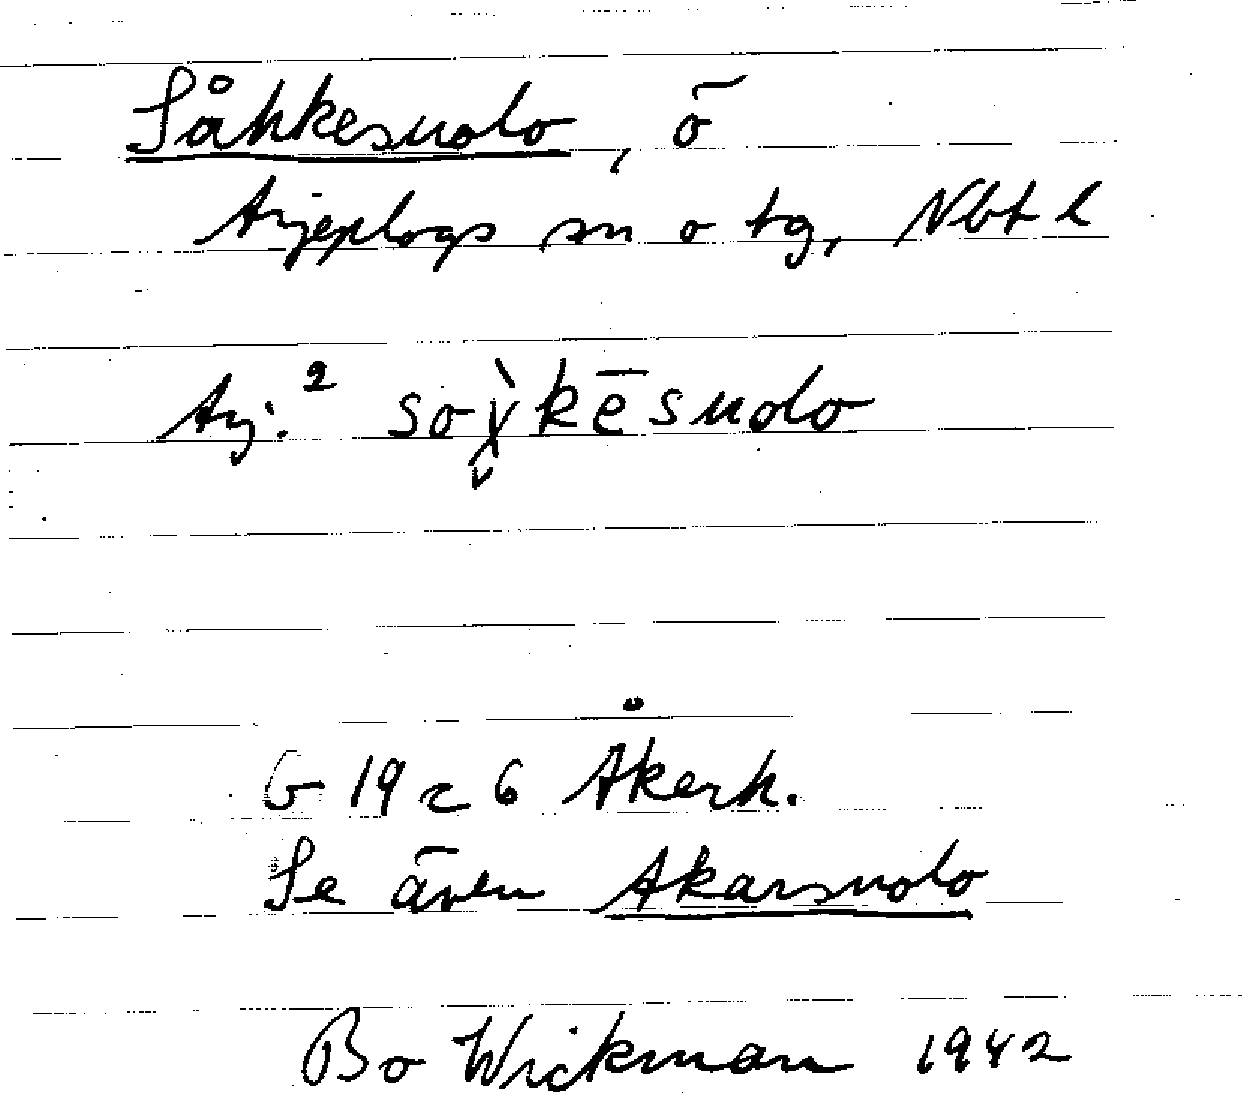 Såhkesuolo, ö
Arjeplogs sn o tg, Nbt l
Arj.² soχ̀kēsuolo
G 19 c 6 Åkerh.
Se även Akarsuolo
Bo Wickman 1942